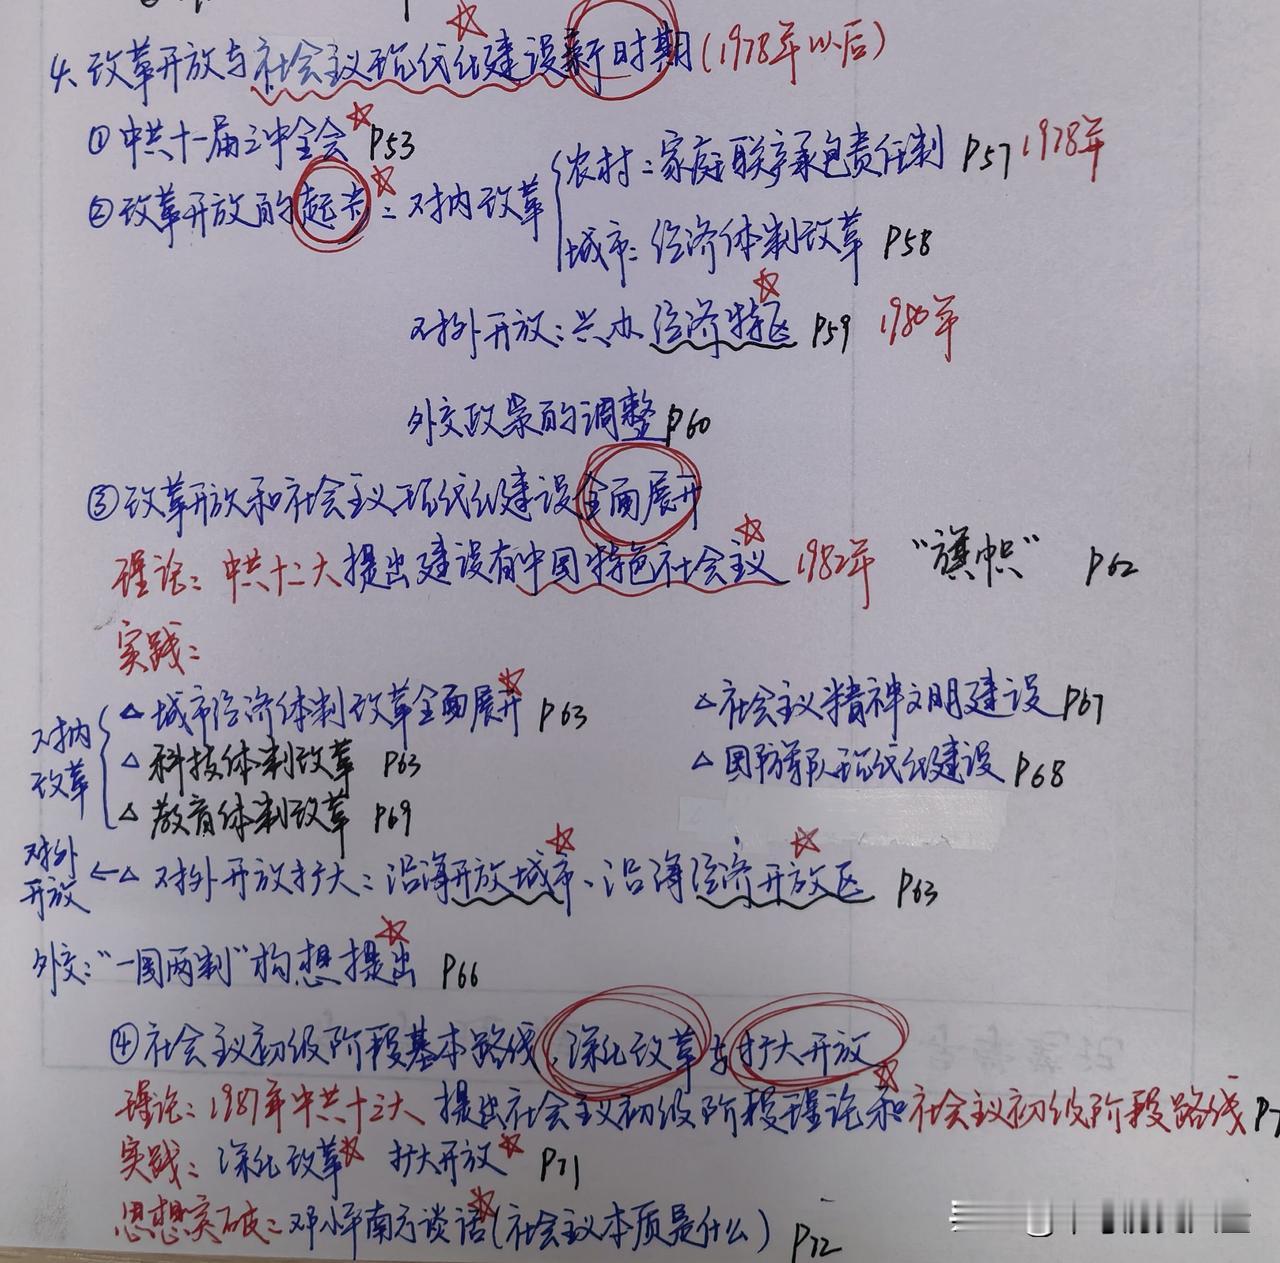 4、改革开放与社会主义现代化建设新时期(1978年以后)
①中共十一届三中全会 P53
②改革开放的起步：对内改革
农村：家庭联产承包责任制 P57 1978年
城市：经济体制改革 P58
对外开放：兴办经济特区 P59 1980年
外交政策的调整 P60
③改革开放和社会主义现代化建设全面展开
理论：中共十二大提出建设有中国特色社会主义 1982年 “旗帜” P62
实践：
对内改革
△城市经济体制改革全面展开 P63
△科技体制改革 P63
△教育体制改革 P69
△社会主义精神文明建设 P67
△国防军队现代化建设 P68
对外开放 ←△ 对外开放扩大：沿海开放城市、沿海经济开放区 P63
外交：“一国两制”构想提出 P66
④社会主义初级阶段基本路线、深化改革与扩大开放
理论：1987年中共十三大 提出社会主义初级阶段理论和社会主义初级阶段路线
实践：深化改革 扩大开放 P71
思想突破：邓小平南方谈话(社会主义本质是什么) P72